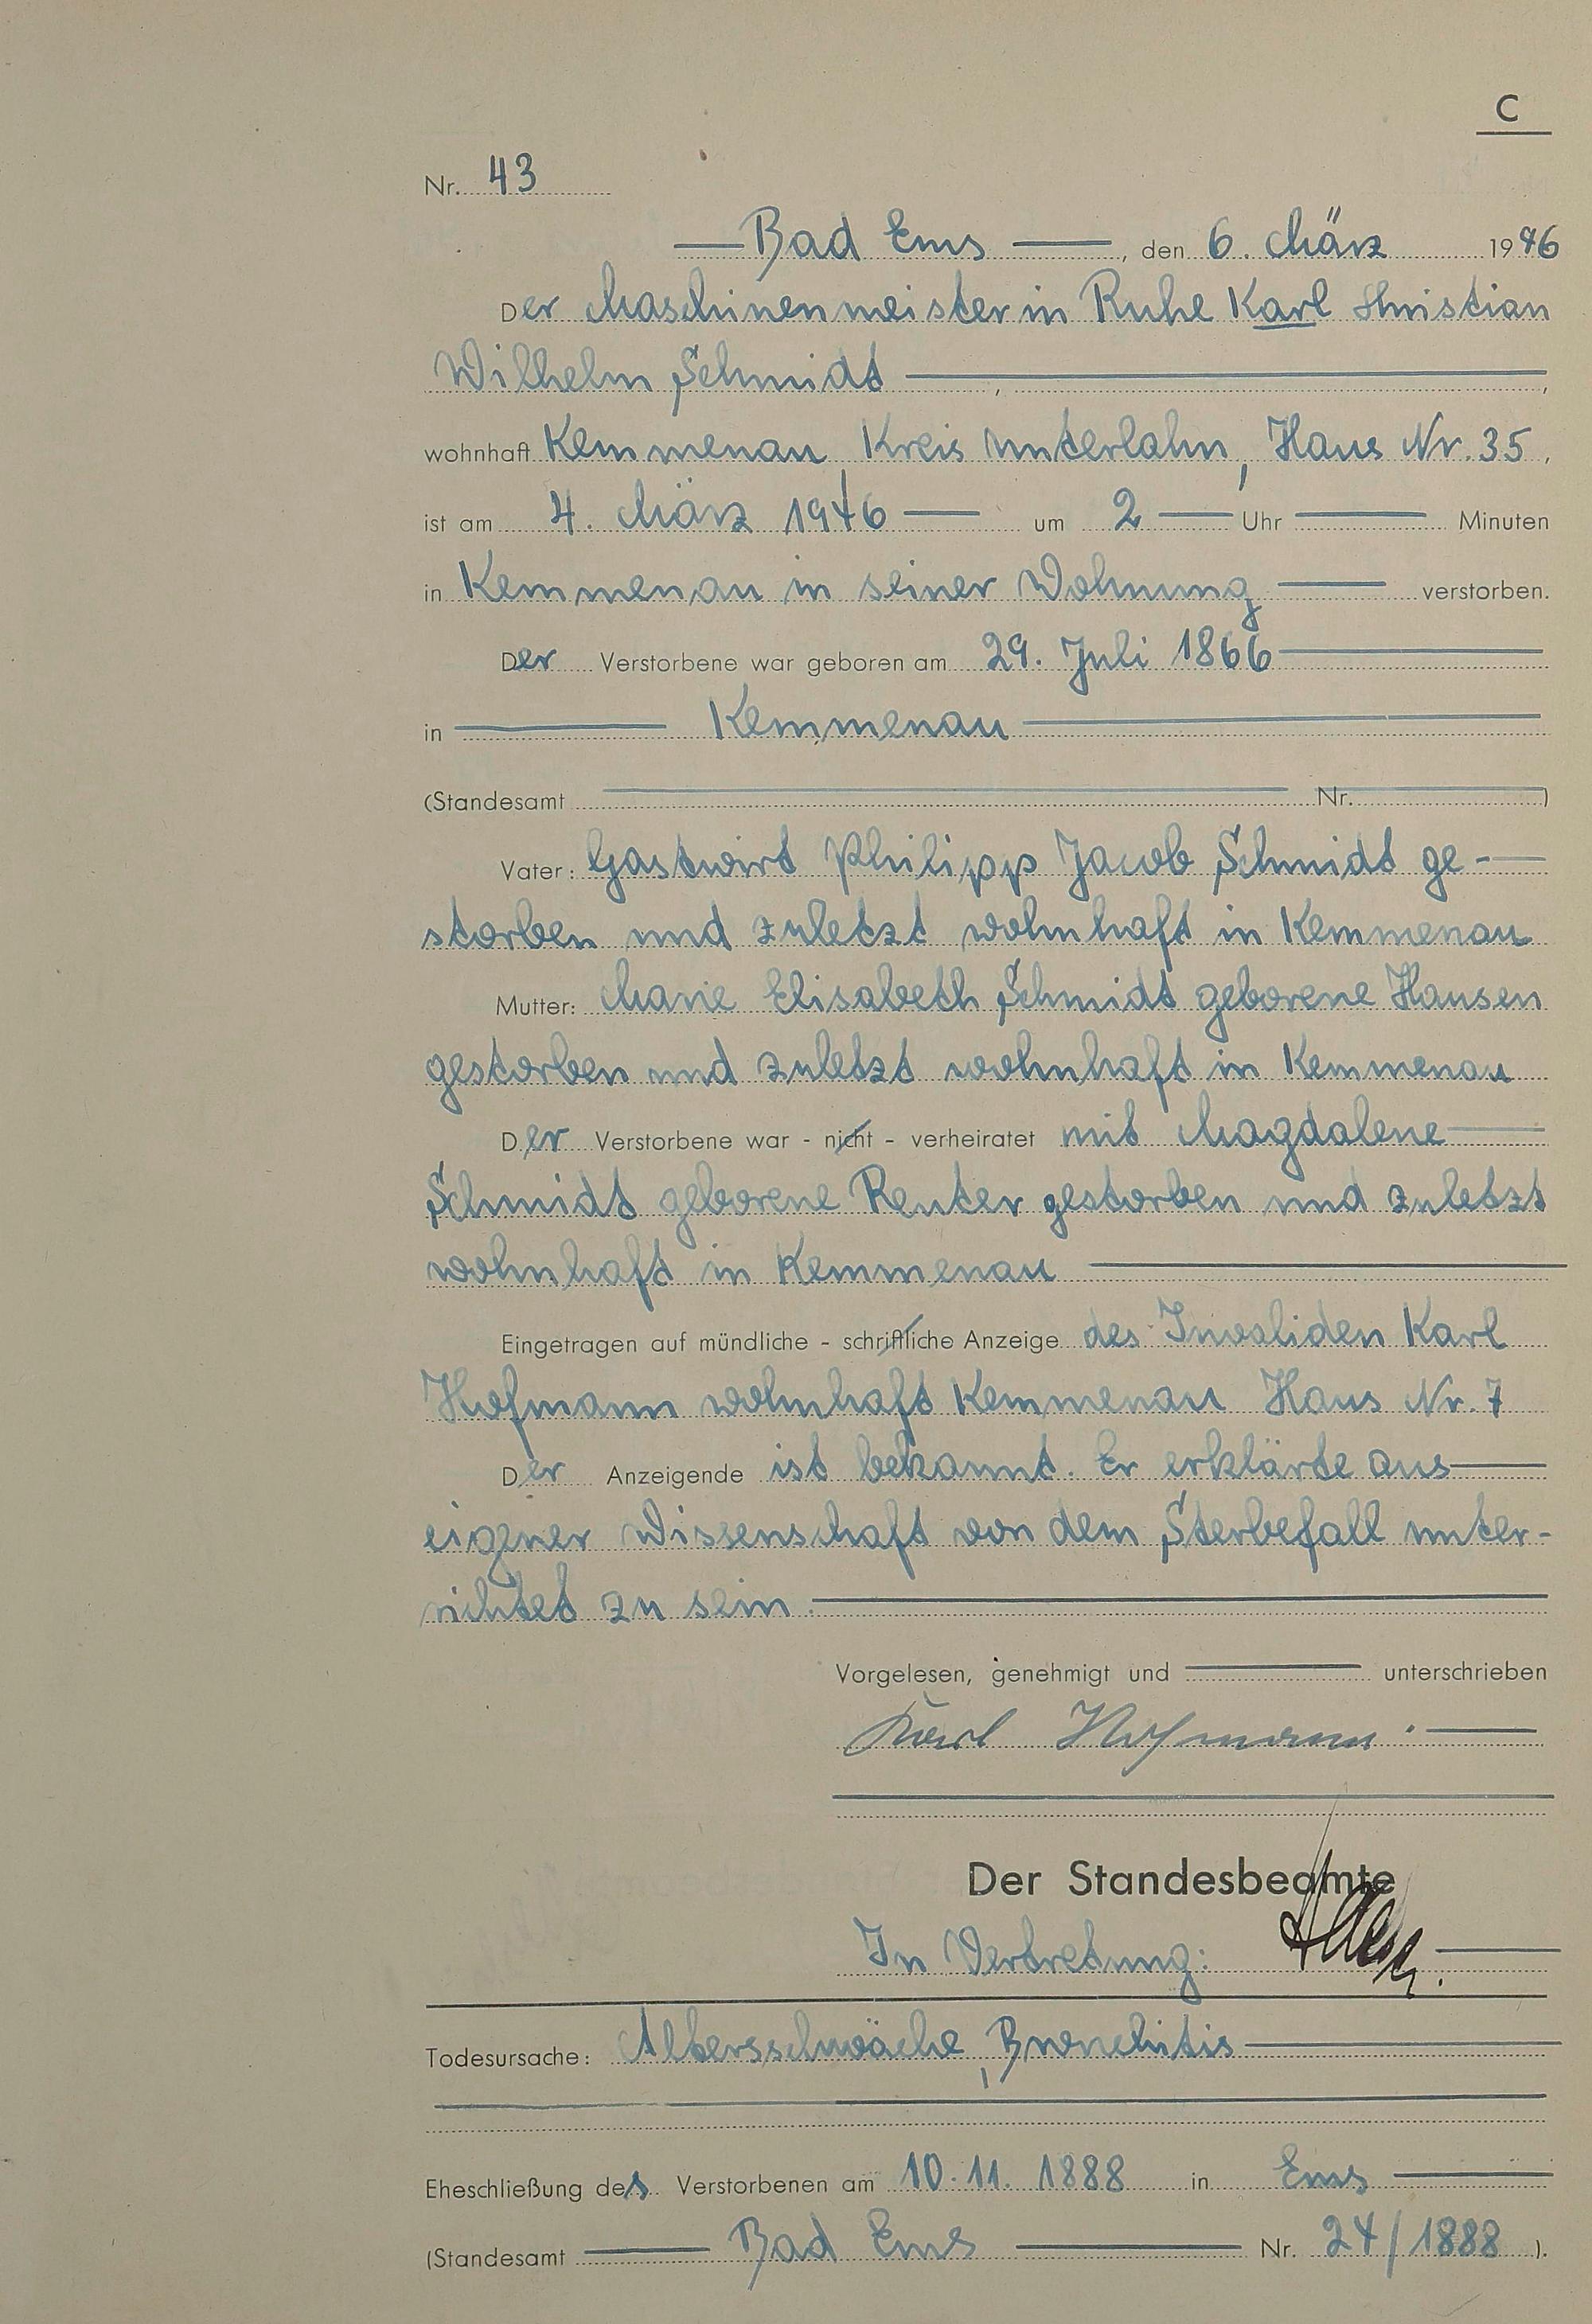 C
Nr. 43
Bad Ems, den 6. März 1946
Der Maschinenmeister in Ruhe Karl Christian
Wilhelm Schmidt,
wohnhaft Kemmenau, Kreis Unterlahn, Haus Nr. 35,
ist am 4. März 1946 um 2 Uhr Minuten
in Kemmenau in seiner Wohnung verstorben.
Der Verstorbene war geboren am 29. Juli 1866
in Kemmenau
(Standesamt Nr. )
Vater: Gastwirt Philipp Jacob Schmidt ge-
storben und zuletzt wohnhaft in Kemmenau
Mutter: Marie Elisabeth Schmidt geborene Hausen
gestorben und zuletzt wohnhaft in Kemmenau
Der Verstorbene war - nicht - verheiratet mit Magdalene
Schmidt geborene Reuter gestorben und zuletzt
wohnhaft in Kemmenau
Eingetragen auf mündliche - schriftliche Anzeige des Invaliden Karl
Hofmann wohnhaft Kemmenau Haus Nr. 7
Der Anzeigende ist bekannt. Er erklärte aus
eigener Wissenschaft von dem Sterbefall unter-
richtet zu sein.
Vorgelesen, genehmigt und unterschrieben
Karl Hofmann.
Der Standesbeamte
In Vertretung:
Todesursache: Altersschwäche, Bronchitis
Eheschließung des Verstorbenen am 10.11.1888 in Ems
(Standesamt Bad Ems Nr. 24/1888 ).